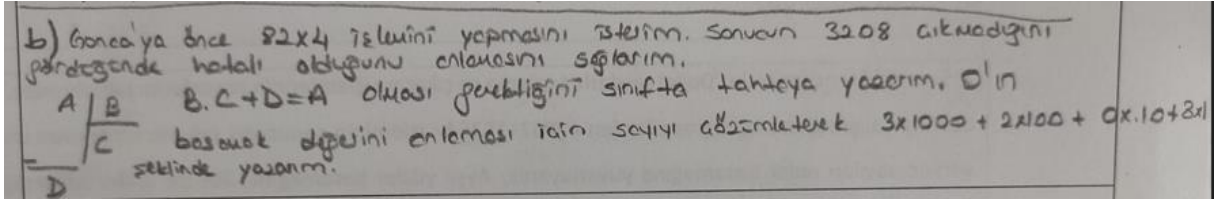 b) Gonca'ya önce 82x4 işlemini yapmasını isterim. Sonucun 3208 çıkmadığını
gördüğünde hatalı olduğunu anlamasını sağlarım.
A | B B.C+D=A olması gerektiğini sınıfta tahtaya yazarım. 0'ın
C basamak değerini anlaması için sayıyı çözümleterek 3x1000 + 2x100 + 0x10+8x1
D şeklinde yazarım.